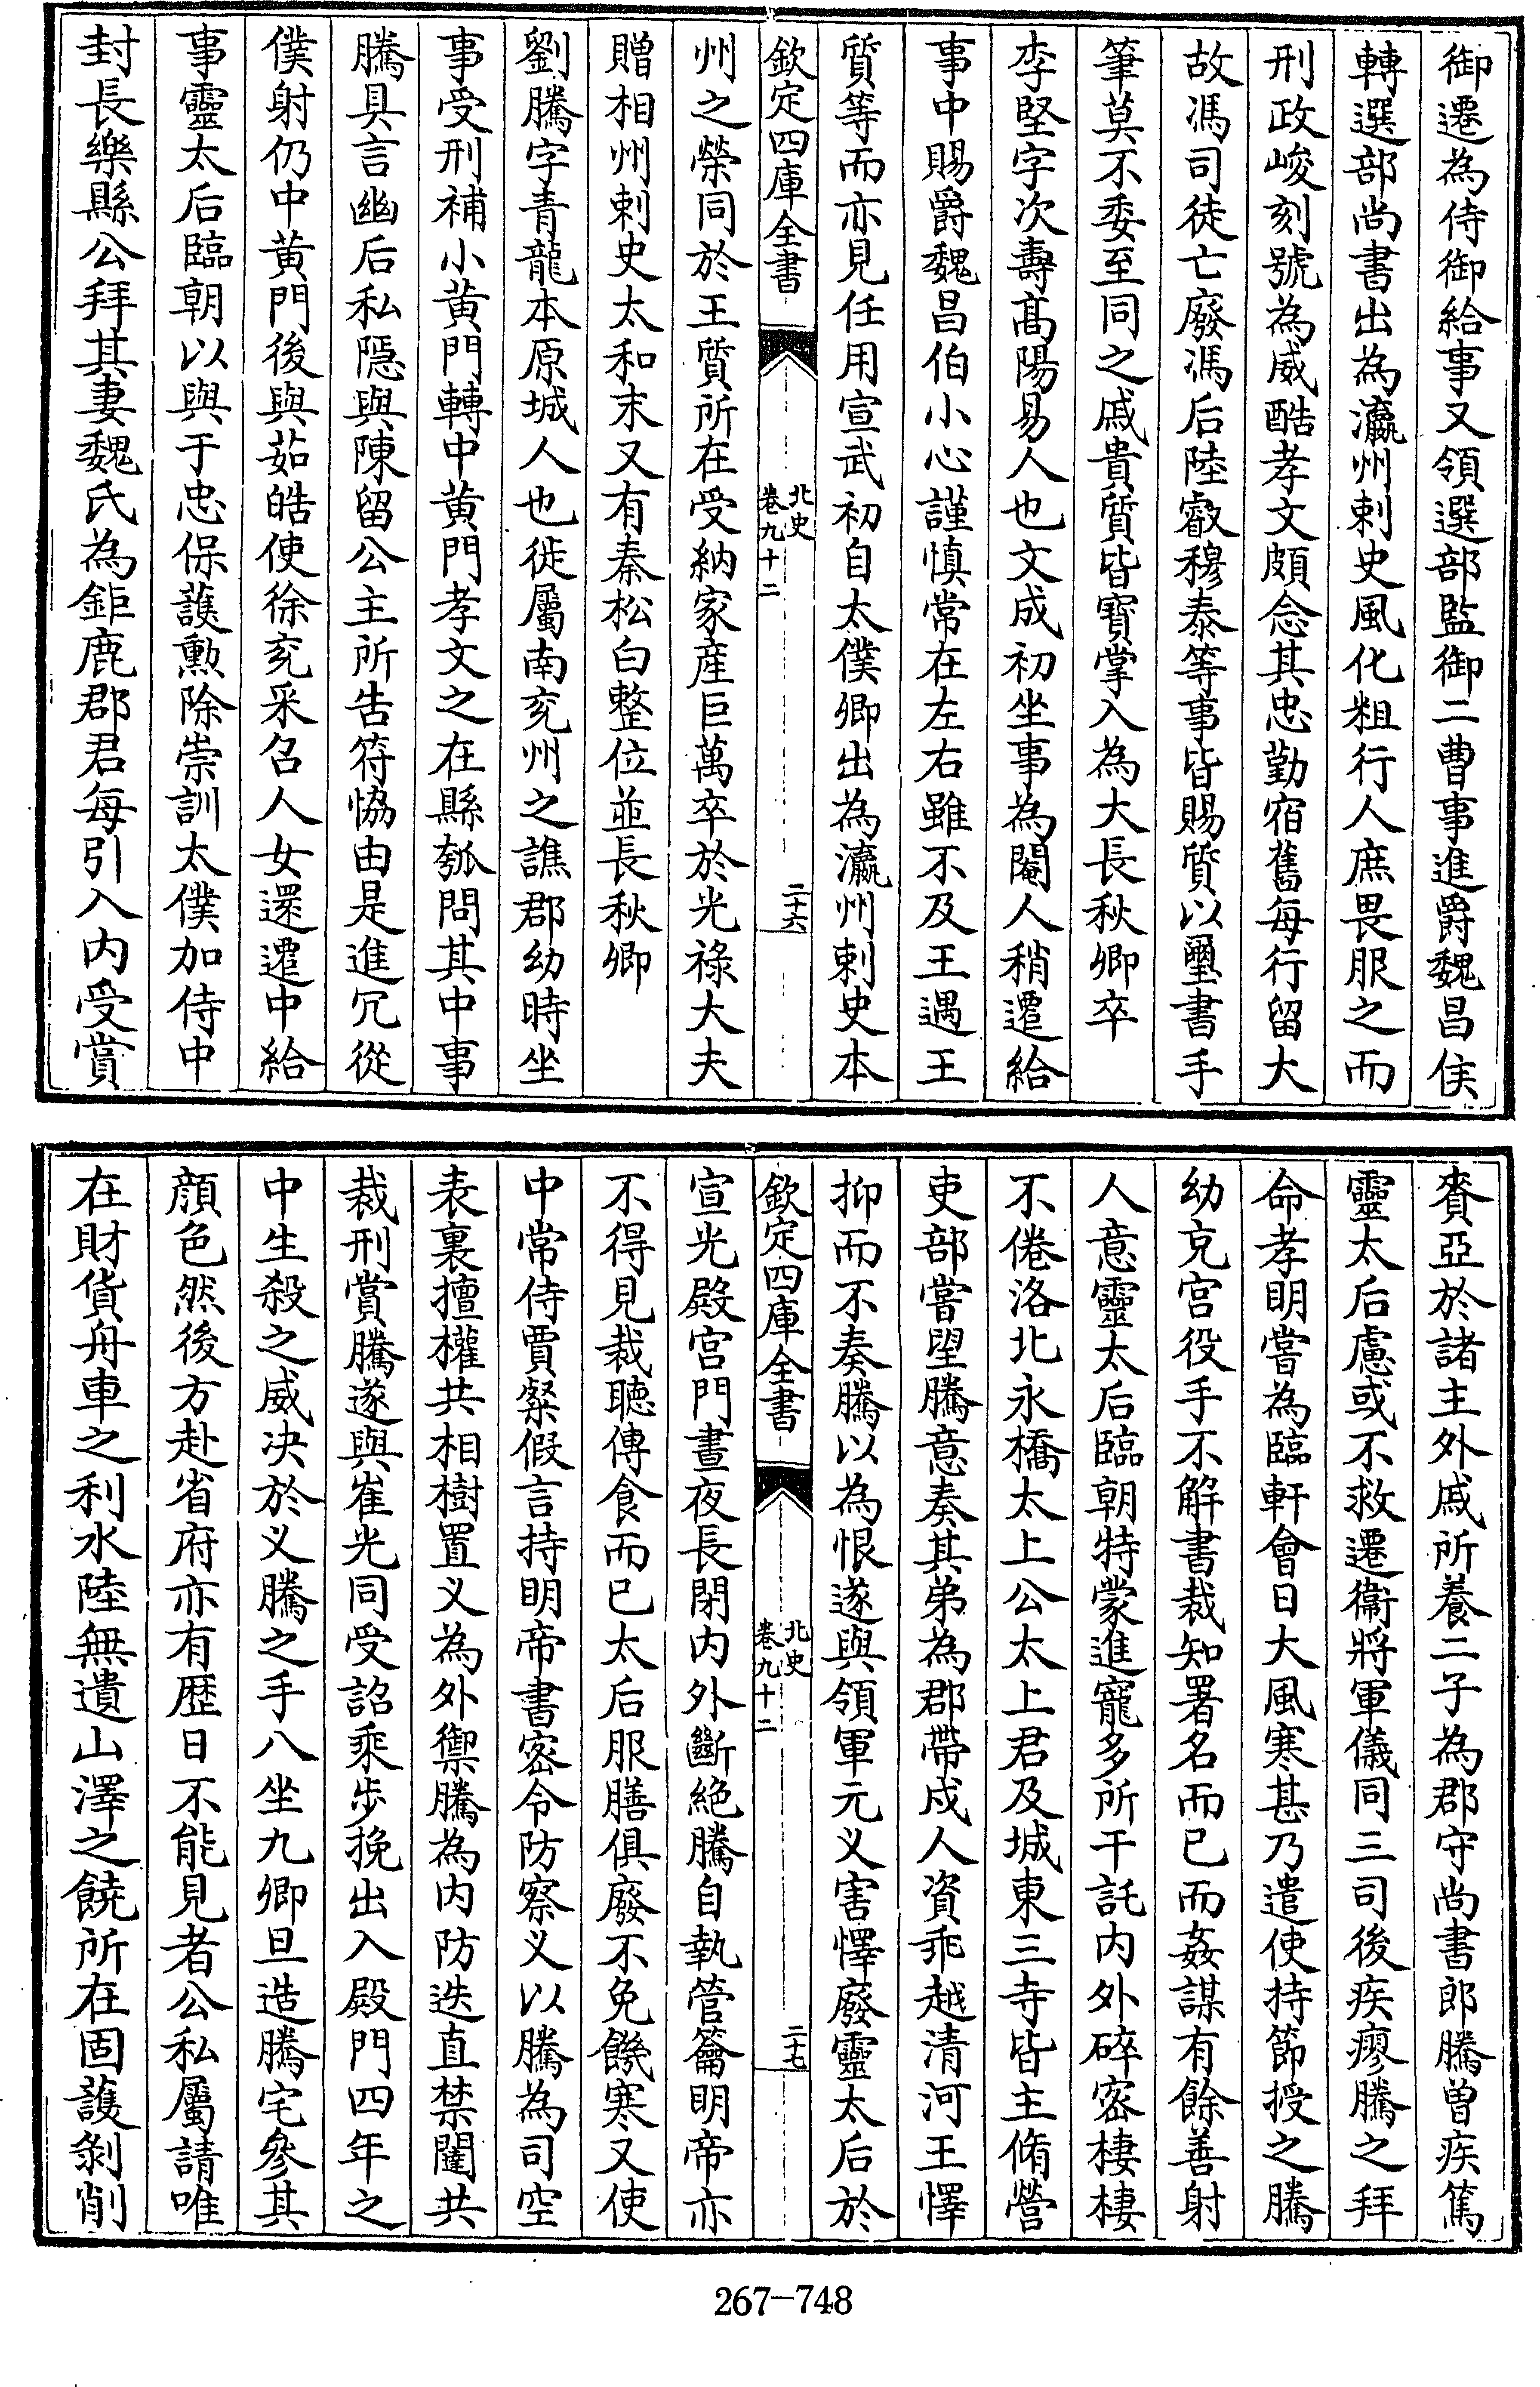 御遷為侍御給事又領選部監御二曹事進爵魏昌侯
轉選部尚書出為瀛州刺史風化粗行人庶畏服之而
刑政峻刻號為威酷孝文頗念其忠勤宿舊每行留大
故馮司徒亡廢馮后陸叡穆泰等事皆賜質以璽書手
筆莫不委至同之戚貴質皆寶掌入為大長秋卿卒
李堅字次壽高陽易人也文成初坐事為閹人稍遷給
事中賜爵魏昌伯小心謹慎常在左右雖不及王遇王
質等而亦見任用宣武初自太僕卿出為瀛州刺史本
欽定四庫全書
北史
卷九十二
二十六
州之榮同於王質所在受納家産巨萬卒於光祿大夫
贈相州刺史太和末又有秦松白整位並長秋卿
劉騰字青龍本原城人也徙屬南兖州之譙郡幼時坐
事受刑補小黄門轉中黄門孝文之在縣瓠問其中事
騰具言幽后私隱與陳留公主所告符恊由是進冗從
僕射仍中黄門後與茹皓使徐兖采召人女還遷中給
事靈太后臨朝以與于忠保護勲除崇訓太僕加侍中
封長樂縣公拜其妻魏氏為鉅鹿郡君每引入内受賞
賚亞於諸主外戚所養二子為郡守尚書郎騰曾疾篤
靈太后慮或不救遷衞將軍儀同三司後疾瘳騰之拜
命孝明嘗為臨軒會日大風寒甚乃遣使持節授之騰
幼充宫役手不解書裁知署名而已而姦謀有餘善射
人意靈太后臨朝特蒙進寵多所干託内外碎密棲棲
不倦洛北永橋太上公太上君及城東三寺皆主脩營
吏部嘗望騰意奏其弟為郡帶戍人資乖越清河王懌
抑而不奏騰以為恨遂與領軍元义害懌廢靈太后於
欽定四庫全書
北史
卷九十二
二十七
宣光殿宫門晝夜長閉内外斷絶騰自執管籥明帝亦
不得見裁聽傳食而已太后服膳俱廢不免饑寒又使
中常侍賈粲假言持明帝書密令防察义以騰為司空
表裏擅權共相樹置义為外禦騰為内防迭直禁闥共
裁刑賞騰遂與崔光同受詔乘步挽出入殿門四年之
中生殺之威决於义騰之手八坐九卿旦造騰宅參其
顔色然後方赴省府亦有歴日不能見者公私屬請唯
在財貨舟車之利水陸無遺山澤之饒所在固護剝削
267-748